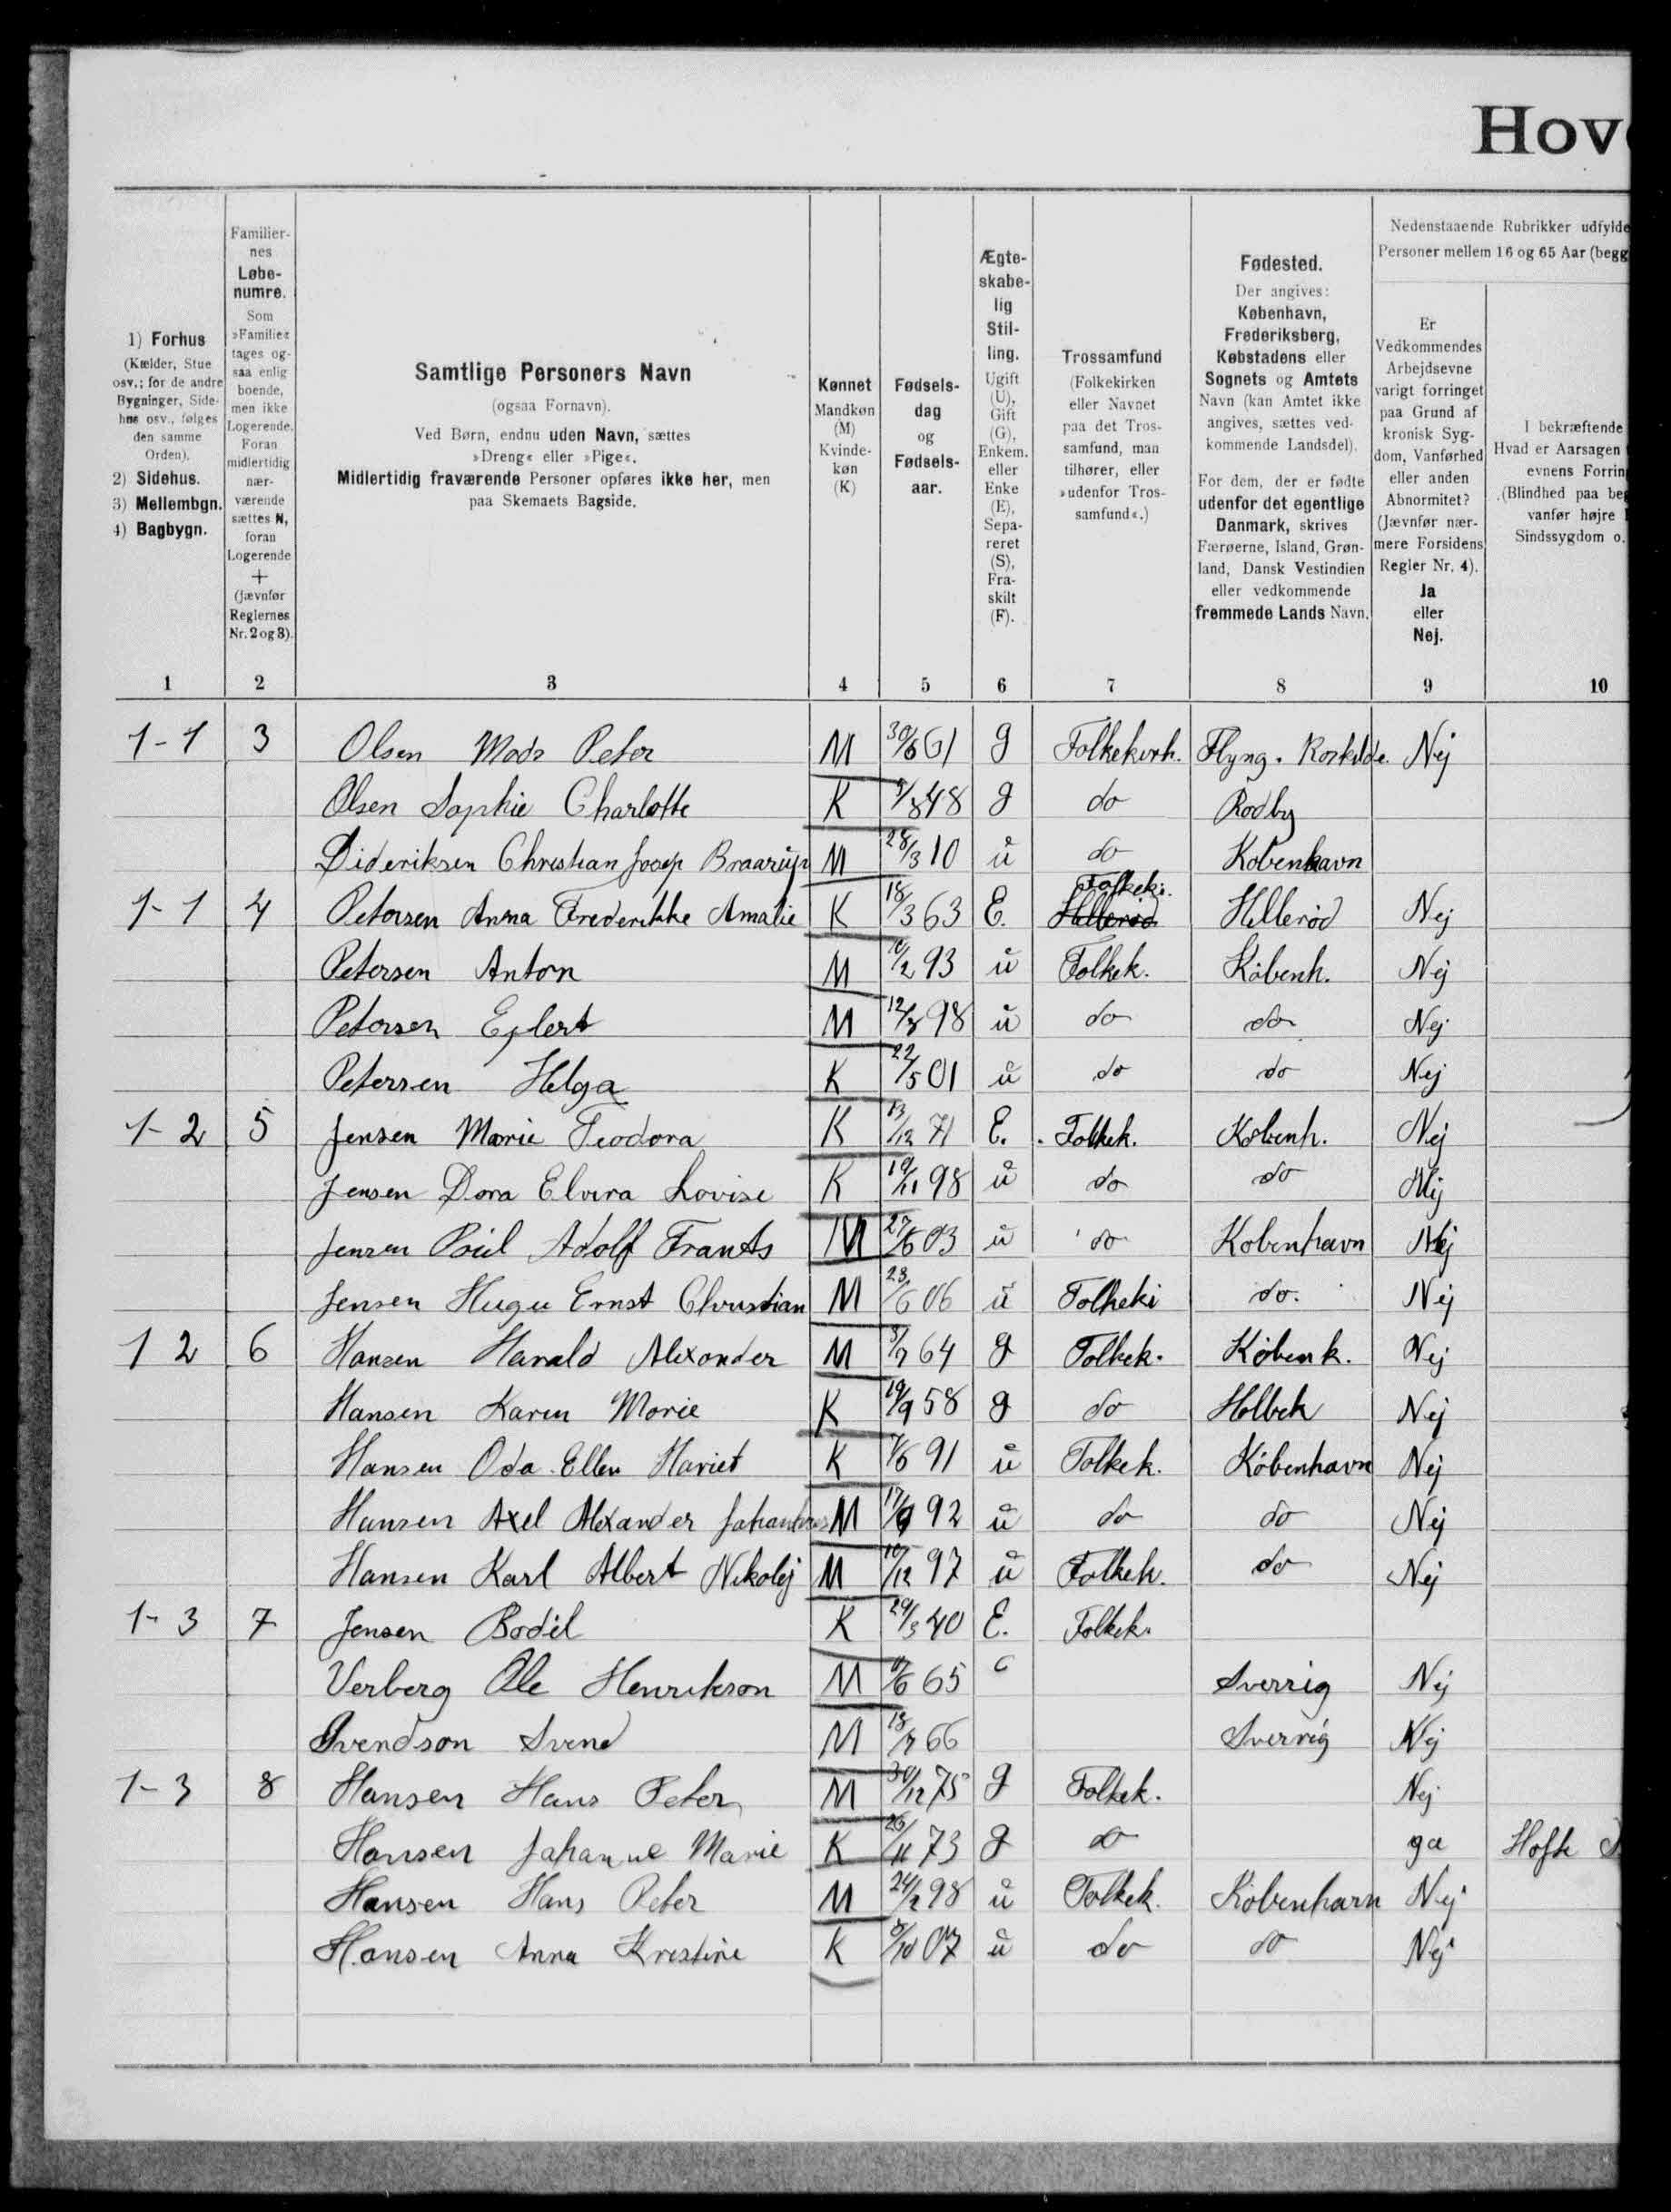 Hov
1) Forhus
(Kælder, Stue
osv.; for de andre
Bygninger, Side-
hus osv., følges
den samme
Orden).
2) Sidehus.
3) Mellembgn.
4) Bagbygn.
Familier-
nes
Løbe-
numre.
Som
»Familie«
tages og-
saa enlig
boende,
men ikke
Logerende.
Foran
midlertidig
nær-
værende
sættes N,
foran
Logerende
+
(Jævnfør
Reglernes
Nr. 2 og 3).
Samtlige Personers Navn
(ogsaa Fornavn).
Ved Børn, endnu uden Navn, sættes
»Dreng« eller »Pige«.
Midlertidig fraværende Personer opføres ikke her, men
paa Skemaets Bagside.
Kønnet
Mandkøn
(M)
Kvinde-
køn
(K)
Fødsels-
dag
og
Fødsels-
aar.
Ægte-
skabe-
lig
Stil-
ling.
Ugift
(U),
Gift
(G),
Enkem.
eller
Enke
(E),
Sepa-
reret
(S),
Fra-
skilt
(F).
Trossamfund
(Folkekirken
eller Navnet
paa det Tros-
samfund, man
tilhører, eller
»udenfor Tros-
samfund«.)
Fødested.
Der angives:
København,
Frederiksberg,
Købstadens eller
Sognets og Amtets
Navn (kan Amtet ikke
angives, sættes ved-
kommende Landsdel).
For dem, der er fødte
udenfor det egentlige
Danmark, skrives
Færøerne, Island, Grøn-
land, Dansk Vestindien
eller vedkommende
fremmede Lands Navn.
Nedenstaaende Rubrikker udfylde
Personer mellem 16 og 65 Aar (begg
Er
Vedkommendes
Arbejdsevne
varigt forringet
paa Grund af
kronisk Syg-
dom, Vanførhed
eller anden
Abnormitet?
(Jævnfør nær-
mere Forsidens
Regler Nr. 4).
Ja
eller
Nej.
I bekræftende
Hvad er Aarsagen
evnens Forrin
(Blindhed paa be
vanfør højre
Sindssygdom o.
1 2 3 4 5 6 7 8 9 10
1-1 3 Olsen Mads Peter M 30/6 61 g Folkekirk. Flyng. Roskilde. Nej
Olsen Sophie Charlotte K /8 48 g do Rodby
Dideriksen Christian Josep Braarup M 28/3 10 u do København
Folkek.
1-1 4 Petersen Anna Frederikke Amalie K 18/3 63 E. Hillerød Hillerød Nej
Petersen Anton M 10/2 93 u Folkek. Københ. Nej
Petersen Eglert M 12/8 98 u do do Nej
Petersen Helga K 22/5 01 u do do Nej
1-2 5 Jensen Marie Teodora K 13/12 71 E. Folkek. Københ. Nej
Jensen Dora Elvira Lovise K 19/11 98 u do do Nej
Jensen Poul Adolf Frants M 27/6 03 u do København Nej
Jensen Hugu Ernst Christian M 23/6 06 u Folkeki do. Nej
1 2 6 Hansen Harald Alexander M 8/7 64 g Folkek. Københ. Nej
Hansen Karen Marie K 19/9 58 g do Holbek Nej
Hansen Oda Ellen Hariet K 7/6 91 u Folkek. København Nej
Hansen Axel Alexander Johannes M 17/9 92 u do do Nej
Hansen Karl Albert Nikolej M 10/12 97 u Folkek. do Nej
1-3 7 Jensen Bodil K 29/3 40 E. Folkek.
Verberg Ole Henrikson M /6 65 Sverrig Nej
Svendson Svend M 18/7 66 Sverrig Nej
1-3 8 Hansen Hans Peter M 30/12 75 g Folkek. Nej
Hansen Johanne Marie K 26/11 73 g do ga Hofte
Hansen Hans Peter M 24/2 98 u Folkek. København Nej
Hansen Anna Kristine K /10 07 u do do Nej